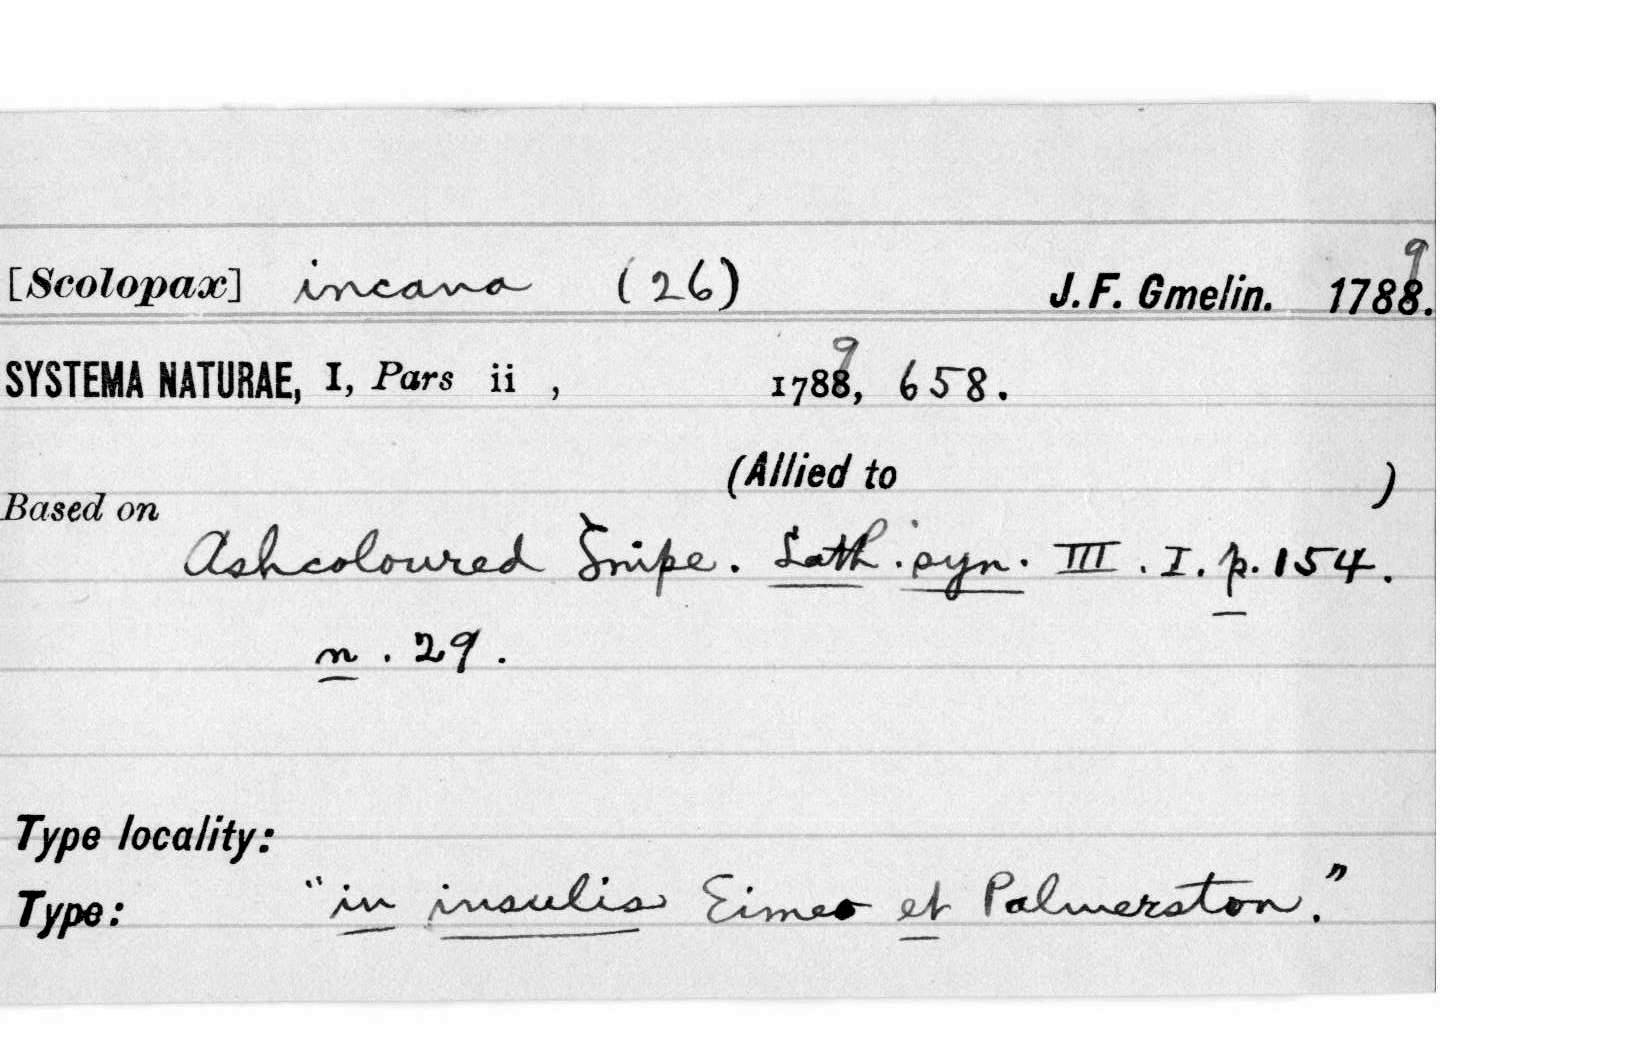 [Scolopax] incana (26) J. F. Gmelin. 1788. 9
SYSTEMA NATURAE, I, Pars ii , 1788, 9 658.
(Allied to )
Based on
Ashcoloured Snipe. Lath. syn. III. I. p. 154.
n. 29.
Type locality:
Type: "in insulis Eimeo et Palmerston."